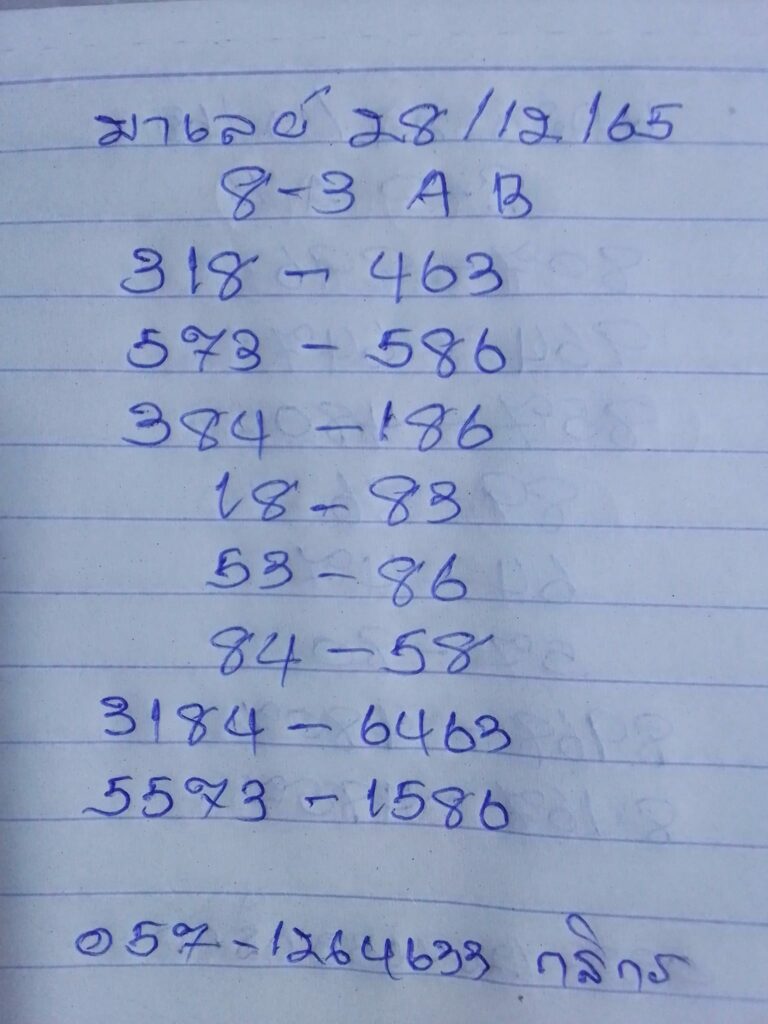 มาเลย์ 28/12/65
8-3 A B
318 - 463
573 - 586
384 - 186
18 - 83
53 - 86
84 - 58
3184 - 6463
5573 - 1586
057-1264633 กสิกร